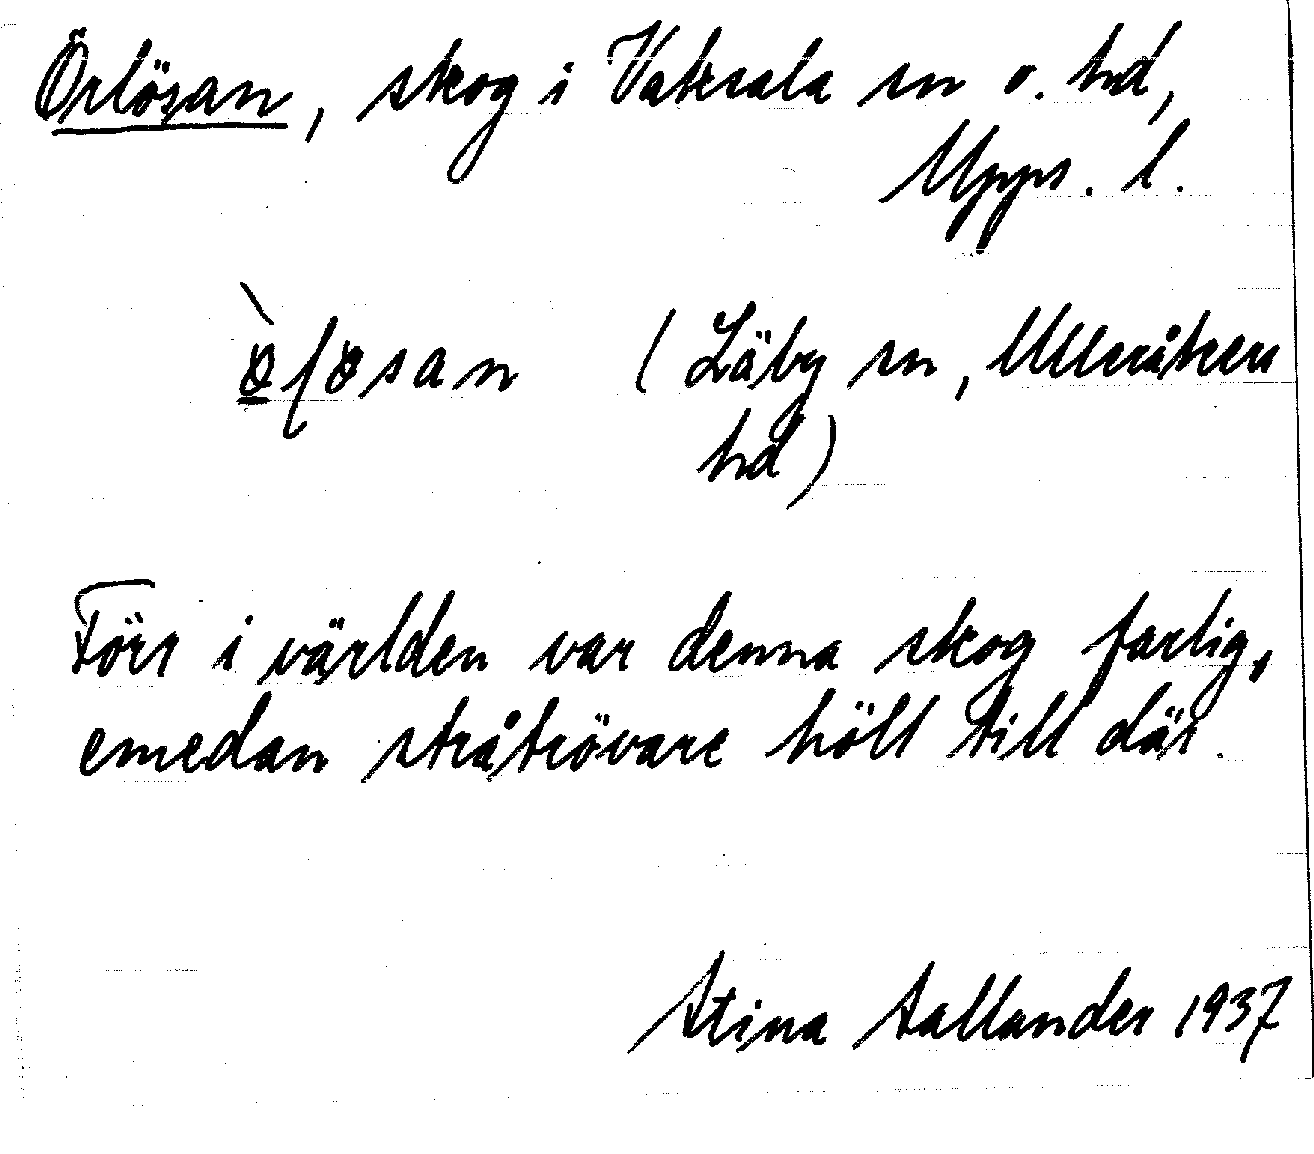 Örlösan, skog i Vaksala sn o. hd,
Upps. l.
(Läby sn, Ulleråkers
hd)
Förr i världen var denna skog farlig,
emedan stråtrövare höll till där.
Stina Sallander 1937